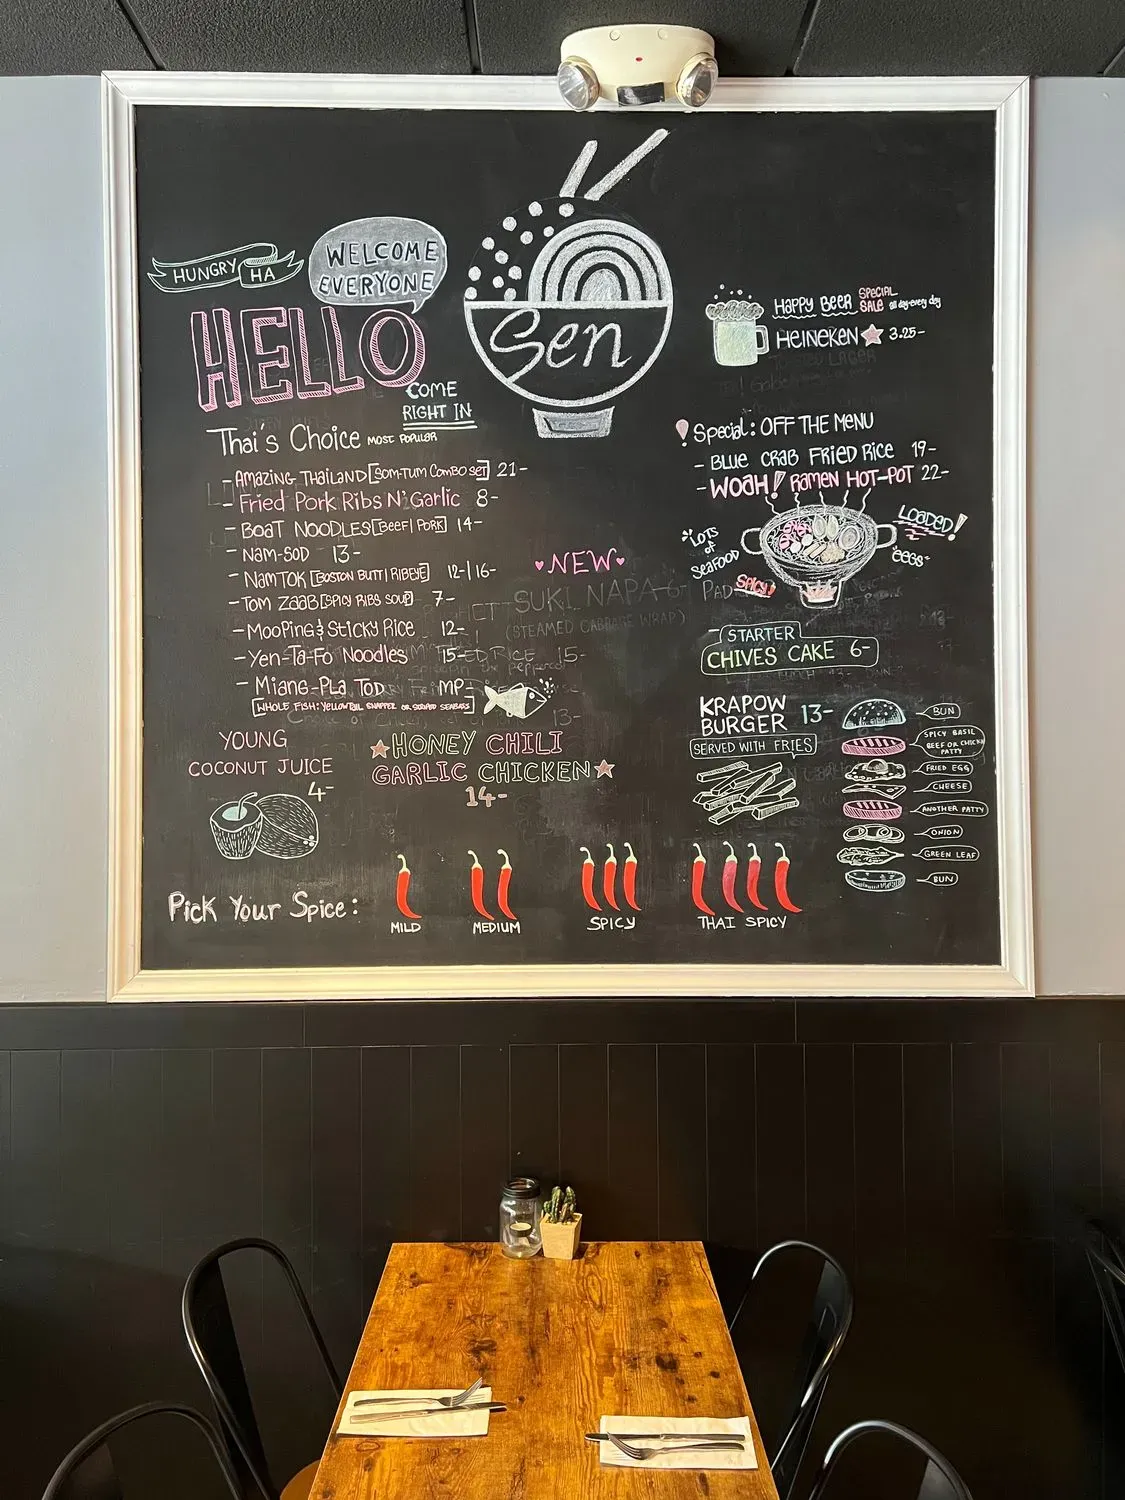 HUNGRY HA
WELCOME
EVERYONE
HELLO
COME
RIGHT IN
Sen
Thai's Choice MOST POPULAR
- AMAZING THAILAND [SOM-TUM COMBO SET] 21-
- Fried Pork Ribs N' Garlic 8-
- BOAT NOODLES [BEEF | PORK] 14-
- NAM-SOD 13-
- NAMTOK [BOSTON BUTT | RIBEYE] 12-|16-
- TOM ZAAB [SPICY RIBS SOUP] 7-
- MOOPING & STICKY RICE 12-
- YEN-TA-FO NOODLES 15-
- MIANG-PLA TOD MP-
[WHOLE FISH: YELLOWTAIL SNAPPER OR STRIPED SEABASS]
YOUNG
COCONUT JUICE
4-
NEW
SUKI NAPA 6-
(STEAMED CABBAGE WRAP)
HONEY CHILI
GARLIC CHICKEN
14-
HAPPY BEER SPECIAL SALE all day every day
HEINEKEN 3.25-
! Special: OFF THE MENU
- BLUE CRAB FRIED RICE 19-
- WOAH! RAMEN HOT-POT 22-
LOADED!
LOTS
of
SEAFOOD
EGGS
PAD
SPICY
- STARTER
CHIVES CAKE 6-
KRAPOW
BURGER 13-
SERVED WITH FRIES
BUN
SPICY BASIL
BEEF OR CHICKEN
PATTY
FRIED EGG
CHEESE
ANOTHER PATTY
ONION
GREEN LEAF
BUN
Pick Your Spice:
MILD
MEDIUM
SPICY
THAI SPICY